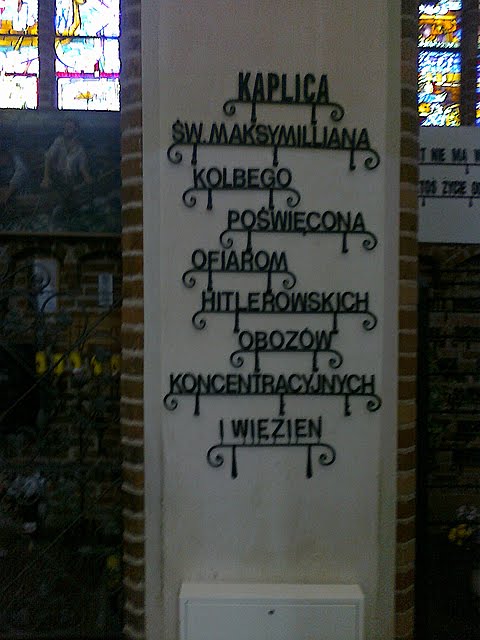 KAPLICA
ŚW. MAKSYMILLIANA
KOLBEGO
POŚWIĘCONA
OFIAROM
HITLEROWSKICH
OBOZÓW
KONCENTRACYJNYCH
I WIĘZIEŃ
NIE MA
ŻYCIE